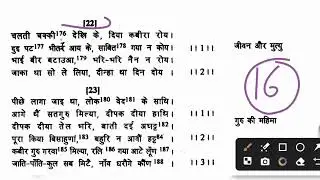 |22|
चलती चक्की176 देखि के, दिया कबीरा रोय।
दुइ पट177 भीतर आय के, साबित178 गया न कोय ||1||
भाई बीर बटाउआ,179 भरि-भरि नैन न रोय।
जाका था सो ले लिया, दीन्हा था दिन दोय ||2||
जीवन और मृत्यु
16
|23|
पीछे लागा जाइ था, लोक180 वेद181 के साथि
आगे थैं सतगुरु मिल्या, दीपक दीया हाथि ||1||
दीपक दीया तेल भरि, बाती दई अघट्ट182
पूरा किया बिसाहूणां,183 बहुरि न आवौं हट्ट184 ||2||
कबीर गुरु गरवा185 मिल्या, रलि186 गया आटे लूंण187
जाति-पाँति-कुल सब मिटै, नाँव धरौगे कौंण188 ||3||
गुरु की महिमा